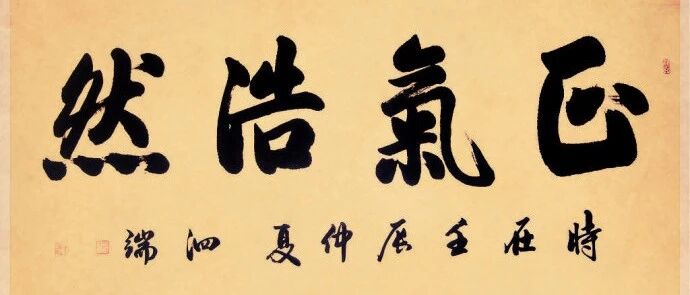 正氣浩然
時在壬辰仲夏 泗端